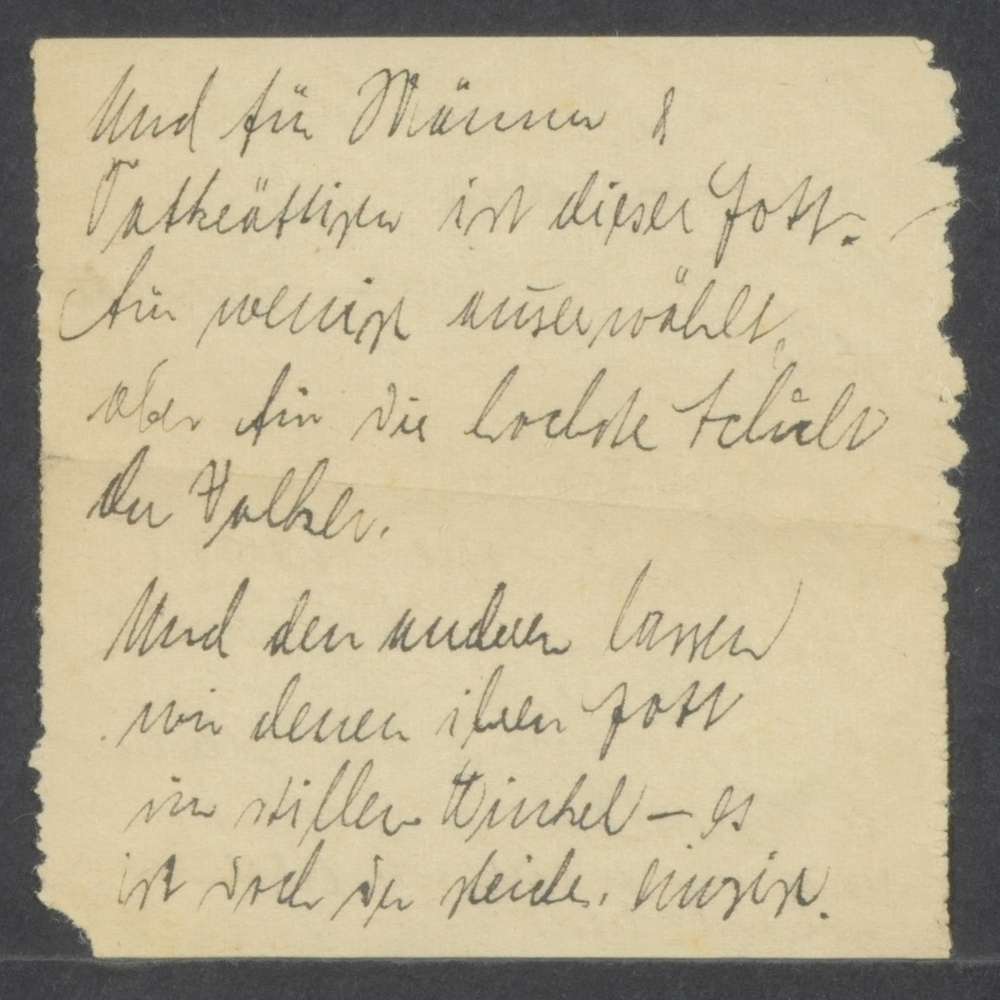 Und für Männer &
Tatkräftigen ist dieser Gott.
für wenige auserwählt,
aber für die hochste Schicht
der Volker.
Und den anderen lassen
wir denen ihren Gott
im stillen Winkel – es
ist doch der gleiche, einzige.